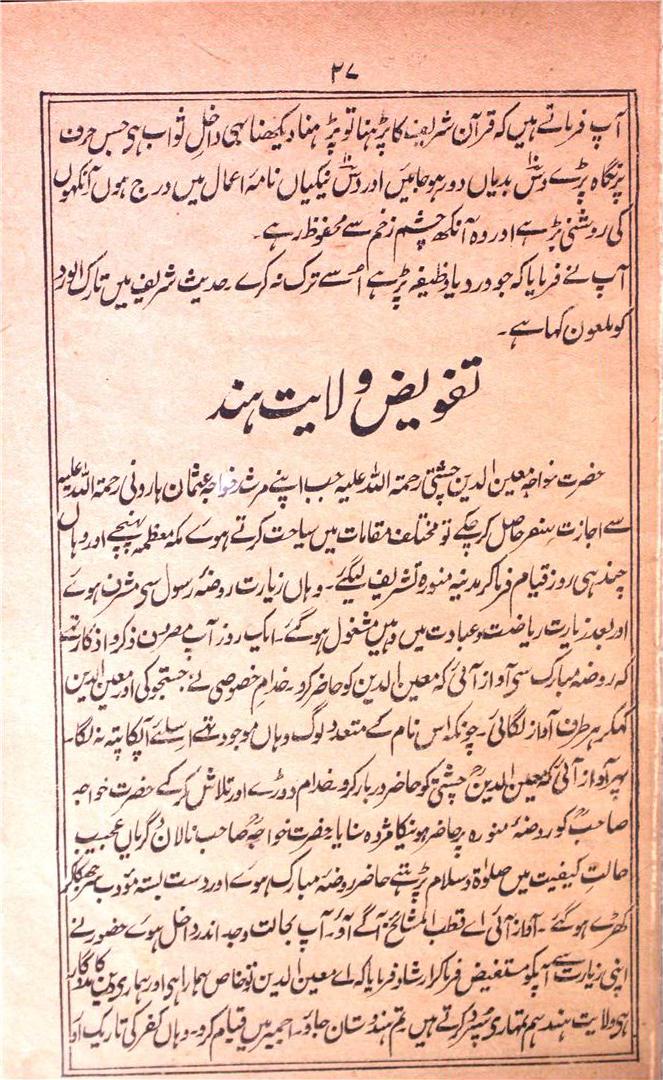 ۲۷
آپ فرماتے ہیں کہ قرآن شریف کا پڑہنا تو پڑہنا دیکھنا بہی داخلِ ثواب ہی جس حرف
پر نگاہ پڑے دسؔ۱۰ بدیاں دور ہو جائیں اور دسؔ۱۰ نیکیاں نامۂ اعمال میں درج ہوں آنکھوں
کی روشنی بڑہے اور وہ آنکھ چشم زخم سے محفوظ رہے۔
آپ نے فرمایا کہ جو ورد یا وظیفہ پڑہے اُسے ترک نہ کرے۔ حدیث شریف میں تارک الورد
کو ملعون کہا ہے۔
تفویض ولایت ہند
حضرت خواجہ معین الدین چشتی رحمۃ اللہ علیہ جب اپنے مرشد خواجہ عثمان ہارونی رحمۃ اللہ علیہ
سے اجازت سفر حاصل کر چکے تو مختلف مقامات میں سیاحت کرتے ہوے مکہ معظمہ پہنچے اور وہاں
چند ہی روز قیام فرما کر مدینہ منورہ تشریف لیگئے۔ وہاں زیارت روضۂ رسول سی مشرف ہوے
اور بعد زیارت ریاضت و عبادت میں وہیں مشغول ہو گئے۔ ایک روز آپ مصروف ذکر و اذکار تہے
کہ روضۂ مبارک سی آواز آئی کہ معین الدین کو حاضر کرو۔ خدام خصوصی نے جستجو کی اور معین الدین
کہکر ہر طرف آواز لگائی۔ چونکہ اس نام کے متعدد لوگ وہاں موجود تہے اسلئے آپکا پتہ نہ لگا۔
پہر آواز آئی کہ معین الدین چشتیؒ کو حاضر دربار کرو۔ خدام دوڑے اور تلاش کر کے حضرت خواجہ
صاحبؒ کو روضۂ منورہ پر حاضر ہونیکا مژدہ سنایا حضرت خواجہؒ صاحب نالاں و گریاں عجیب
حالتِ کیفیت میں صلوٰۃ و سلام پڑہتے حاضر روضۂ مبارک ہوے اور دست بستہ مؤدب سر جھکا کر
کھڑے ہو گئے۔ آواز آئی اے قطب المشائخ آگے آؤ۔ آپ بحالت وجد اندر داخل ہوے حضور نے
اپنی زیارت سے آپکو مستفیض فرما کر ارشاد فرمایا کہ اے معین الدین تو خاص ہمارا ہی اور ہماری دین کا مددگار
ہی ولایت ہند ہم تمہاری سپرد کرتے ہیں تم ہندوستان جاؤ۔ اجمیر میں قیام کرو۔ وہاں کفر کی تاریک